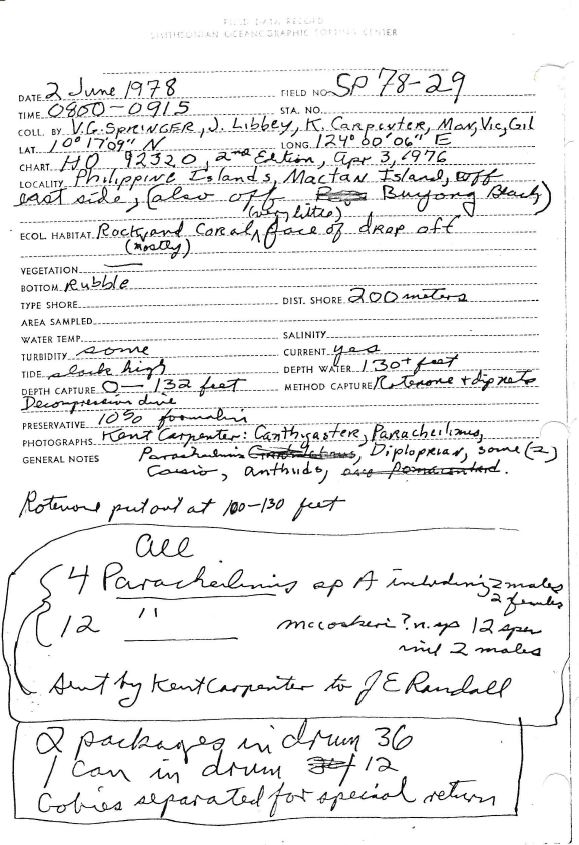 FIELD DATA RECORD
SMITHSONIAN OCEANOGRAPHIC SORTING CENTER
DATE 2 June 1978 FIELD NO. SP 78-29
TIME 0800-0915 STA. NO.
COLL. BY V.G. SPRINGER, J. Libbey, K. Carpenter, Mon, Vic, Gil
LAT. 10° 17'09" N LONG. 124° 00' 06" E
CHART HO 92320, 2nd Edition, Apr 3, 1976
LOCALITY Philippine Islands, Mactan Island, off
east side, (also off Buyong Beach)
(very little)
ECOL. HABITAT Rock and Coral, face of drop off
(mostly)
VEGETATION
BOTTOM Rubble
TYPE SHORE DIST. SHORE 200 meters
AREA SAMPLED
WATER TEMP. SALINITY
TURBIDITY some CURRENT yes
TIDE slack high DEPTH WATER 130+ feet
DEPTH CAPTURE 0-132 feet METHOD CAPTURE Rotenone + dipnets
Decompression dive
PRESERVATIVE 10% formalin
PHOTOGRAPHS Kent Carpenter: Canthigaster, Paracheilinus,
GENERAL NOTES Paracheilinus, Diploprion, some (2)
Caesio, anthiids,
Rotenone put out at 100-130 feet
All
4 Paracheilinus sp A including 2 males
2 females
12 " mccoskeri? n. sp 12 spec
incl 2 males
Sent by Kent Carpenter to J E Randall
2 packages in drum 36
1 can in drum 12
Gobies separated for special return